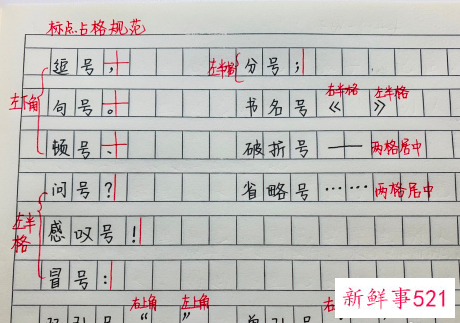 标点占格规范
逗号， 左半格 分号；
右半格 左半格
左下角 句号。 书名号《 》
顿号、 破折号 —— 两格居中
问号？ 省略号 …… 两格居中
左半格 感叹号！
冒号：
右上角 左上角
“ ”
新鲜事521